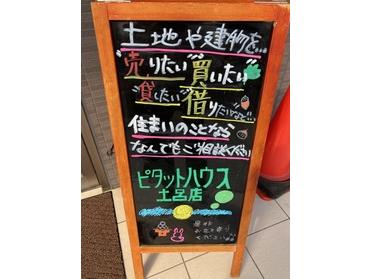 土地や建物を…
"売りたい" 買いたい"
"貸したい" 借りたいなど…
住まいのことなら
なんでもご相談ください
ピタットハウス
土呂店